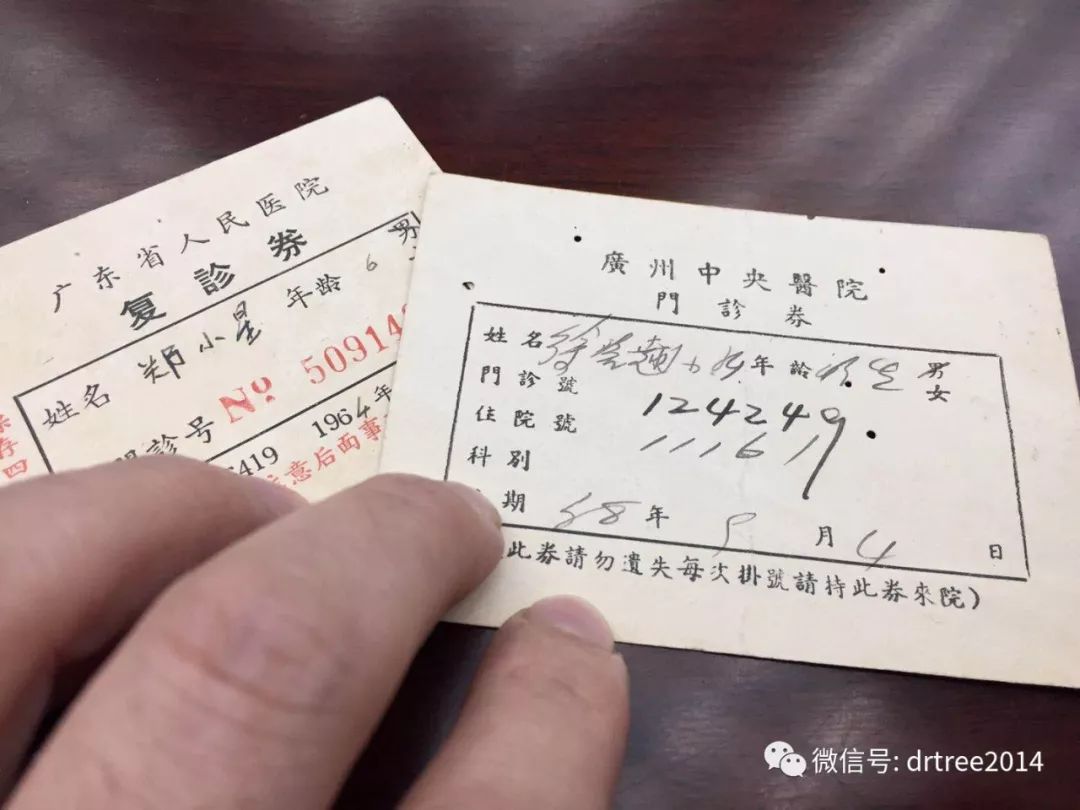 广东省人民医院
复診券
姓名 郑小星 年龄 6 男
診号 № 50914
419 1964年
意后面事
存四
廣州中央醫院
門診券
姓名 徐 年齡 男女
門診號 124249
住院號 111619
科別
期 58年 5月 4日
此券請勿遺失每次掛號請持此券來院)
微信号: drtree2014